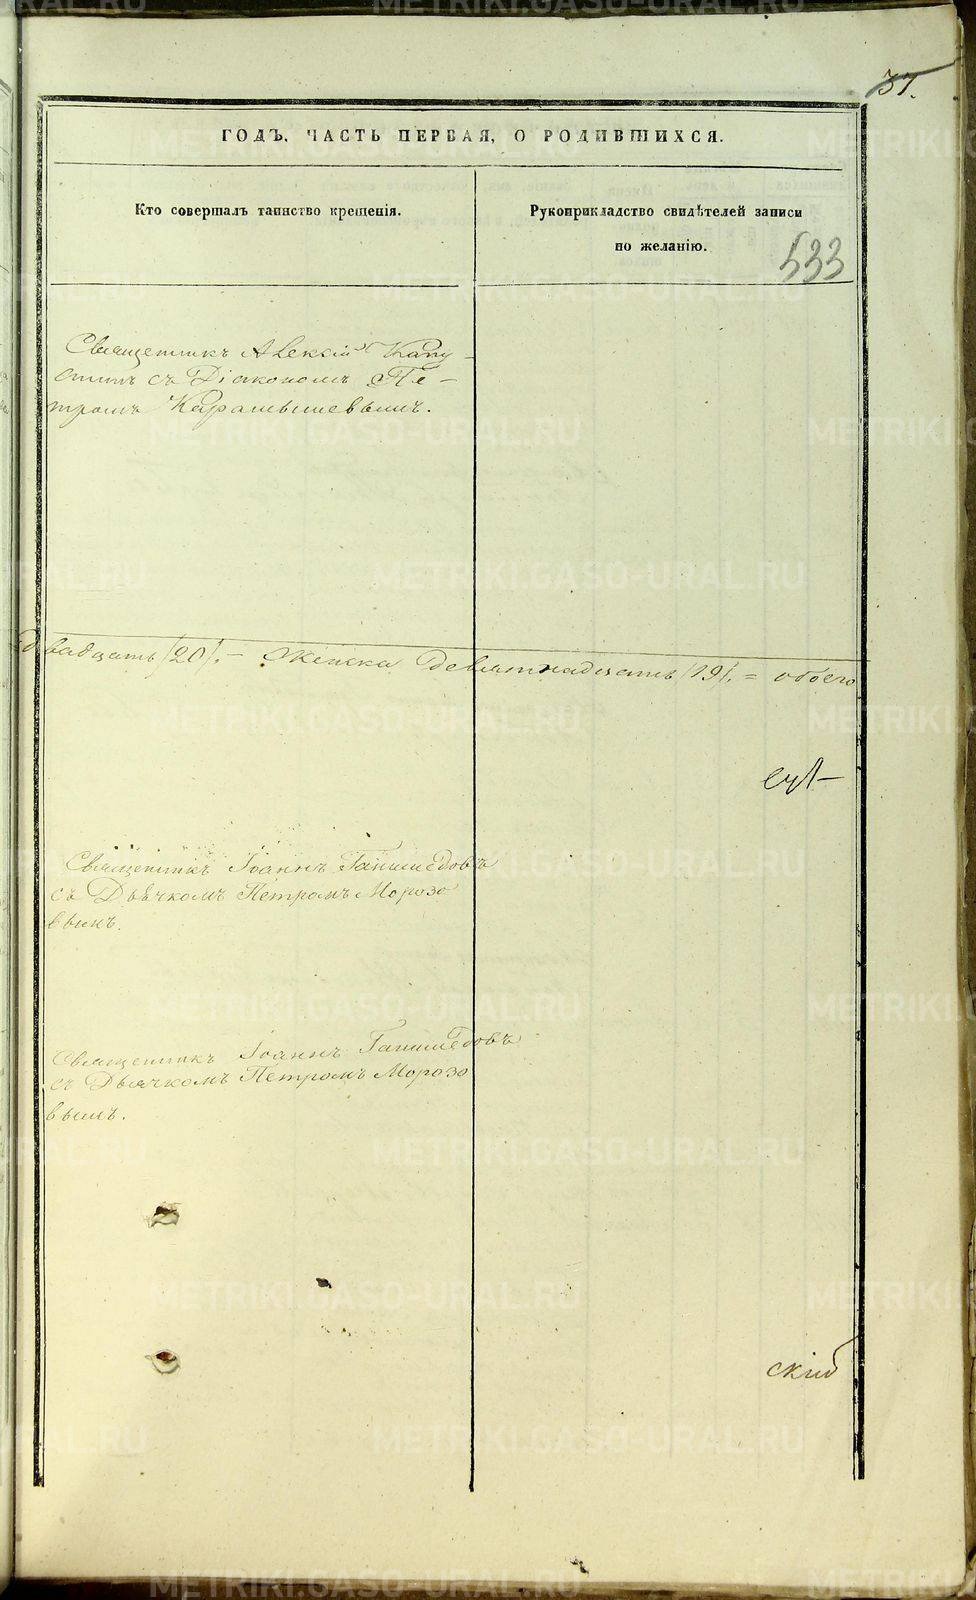 37.
ГОДЪ, ЧАСТЬ ПЕРВАЯ, О РОДИВШИХСЯ.
Кто совершалъ таинство крещенія.
Рукоприкладство свидѣтелей записи
по желанію.
533
Священникъ Алексій Капу-
стинъ съ Діакономъ Пе-
тромъ Карамышевымъ.
двадцать /20/. — женска девятнадцать /19/. = обоего
Священникъ Іоаннъ Ганимедовъ
съ Дьячкомъ Петромъ Морозо
вымъ.
Священникъ Іоаннъ Ганимедовъ
съ Дьячкомъ Петромъ Морозо
вымъ.
скій
METRIKI.GASO-URAL.RU